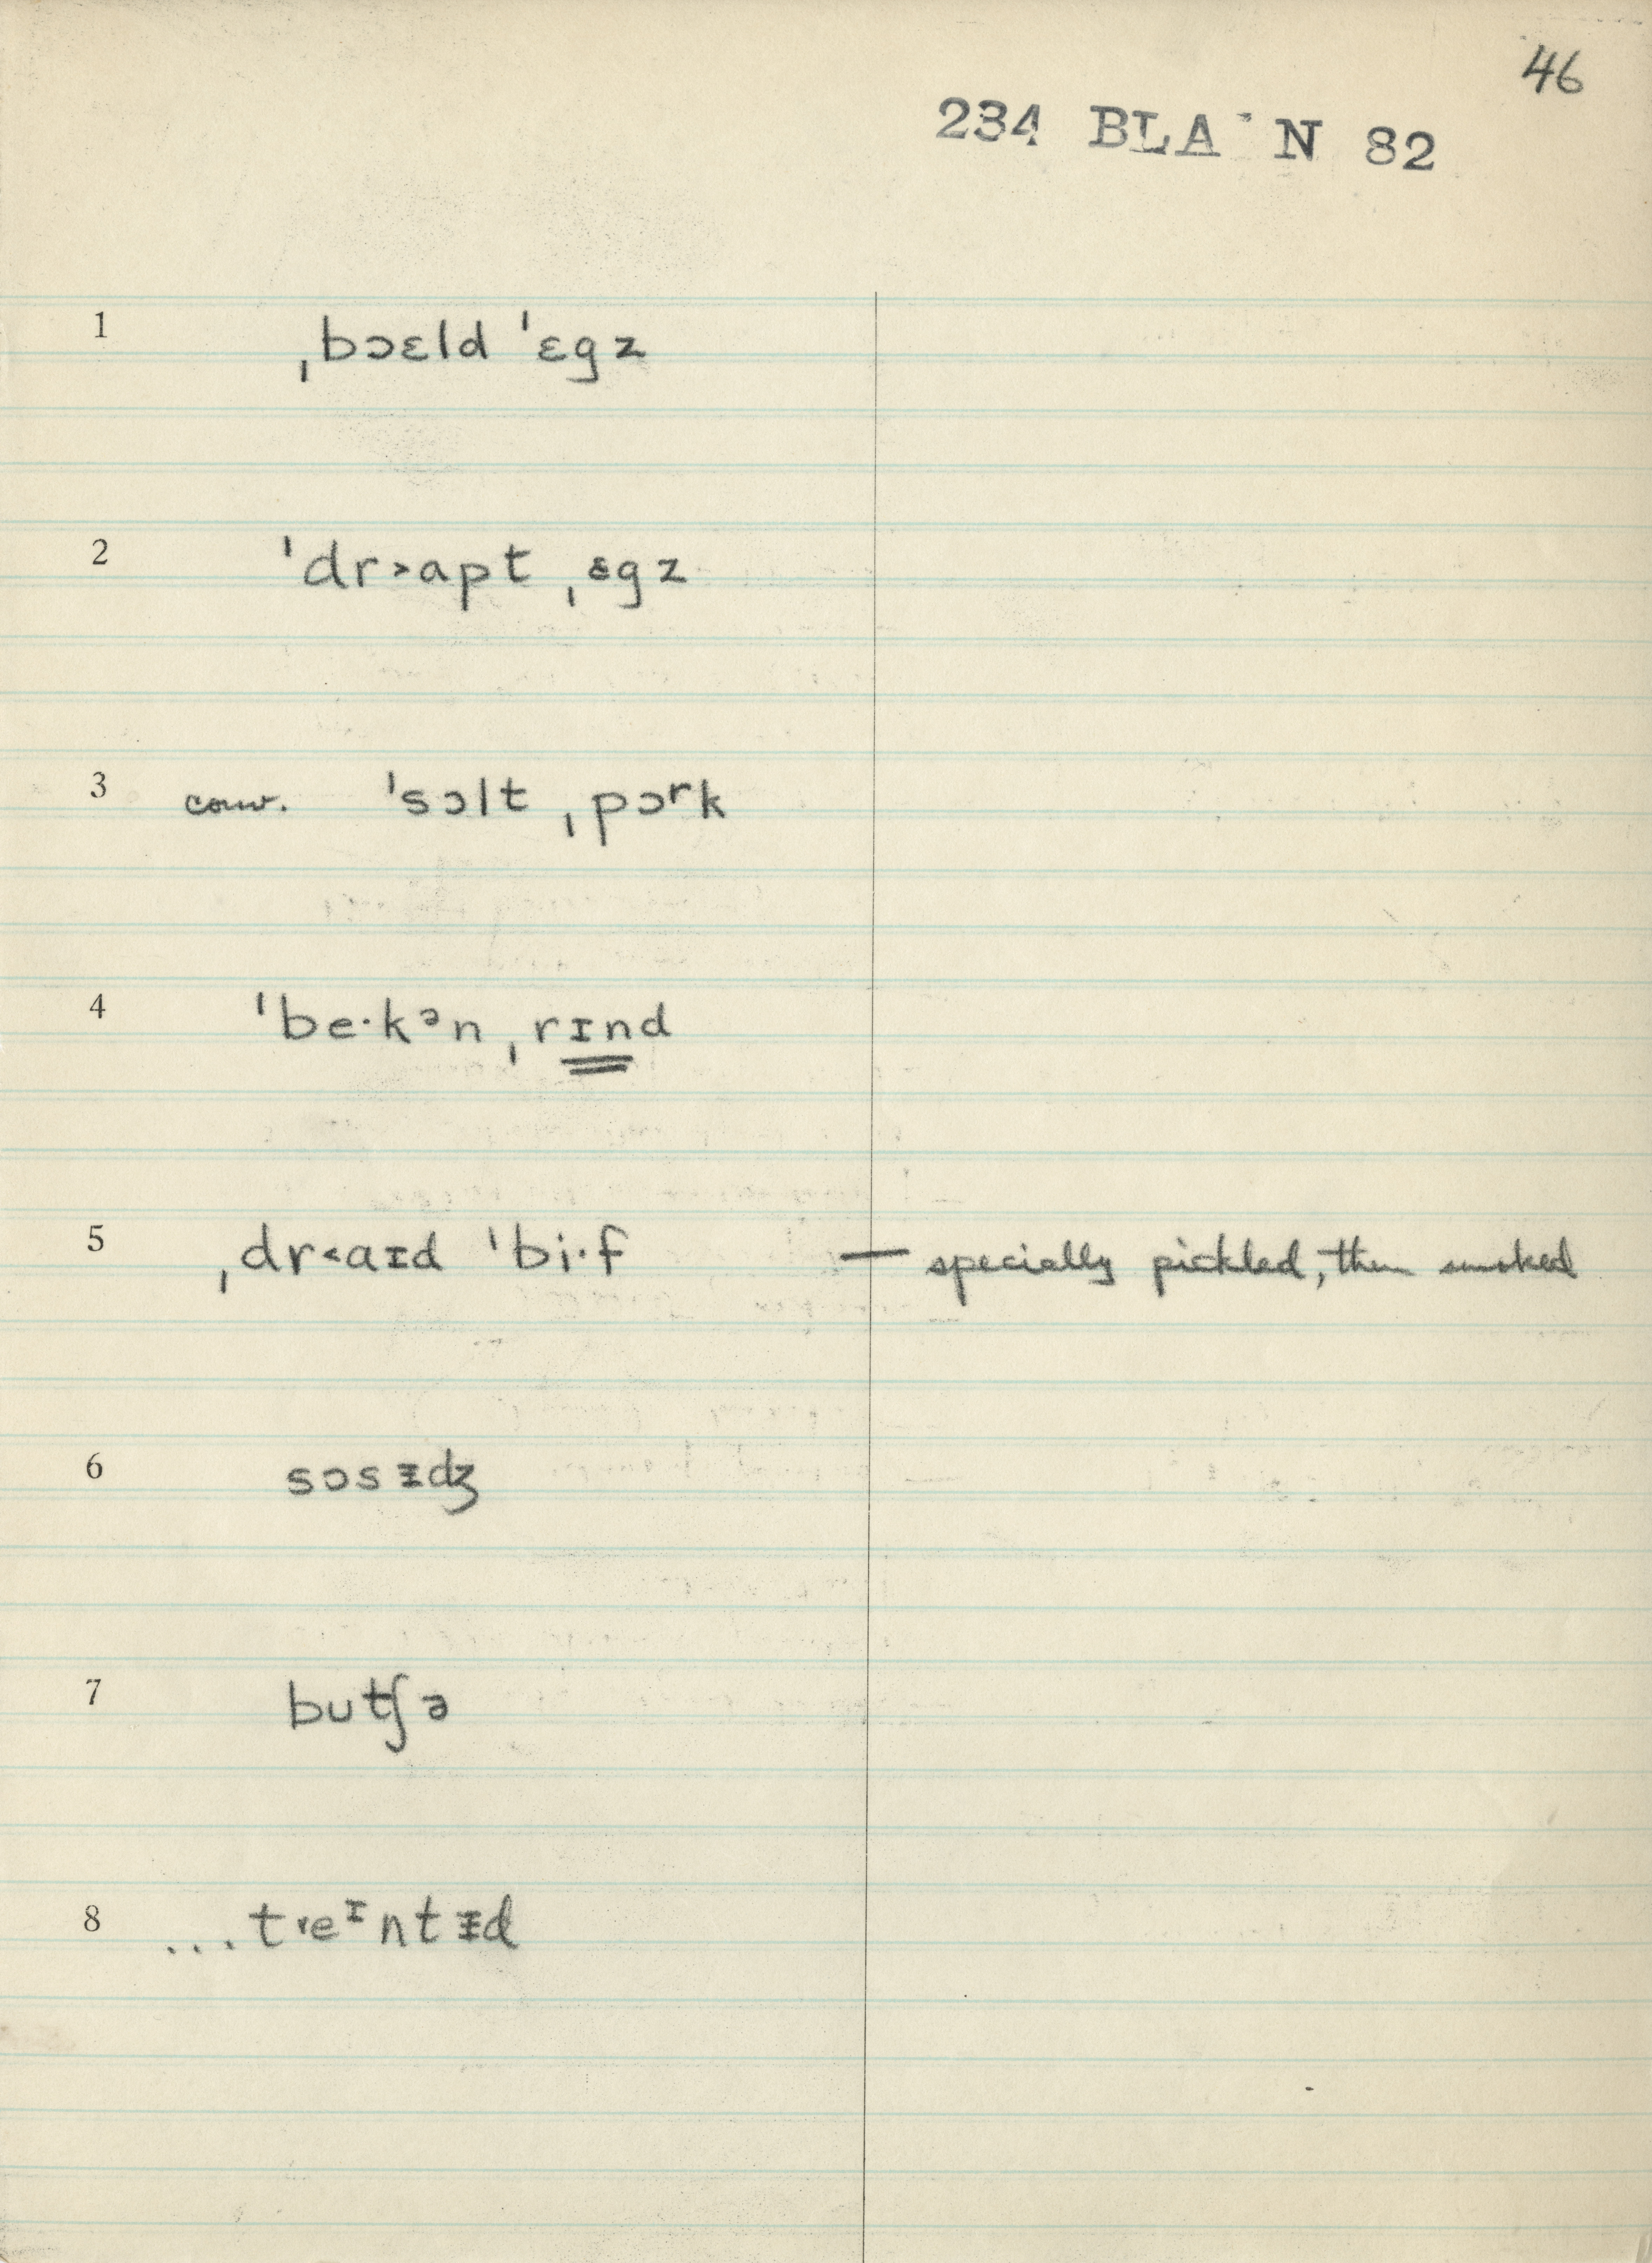 46
234 BLA N 82
1 ˌbɔɛld ˈɛgz
2 ˈdr˃apt ˌɛgz
3 conv. ˈsɔlt ˌpɔʳk
4 ˈbe·kᵊn ˌrɪnd
5 ˌdr˂aɪd ˈbi·f — specially pickled, then smoked
6 sɔsᵻdʒ
7 butʃə
8 ...tˈeᶦntᵻd